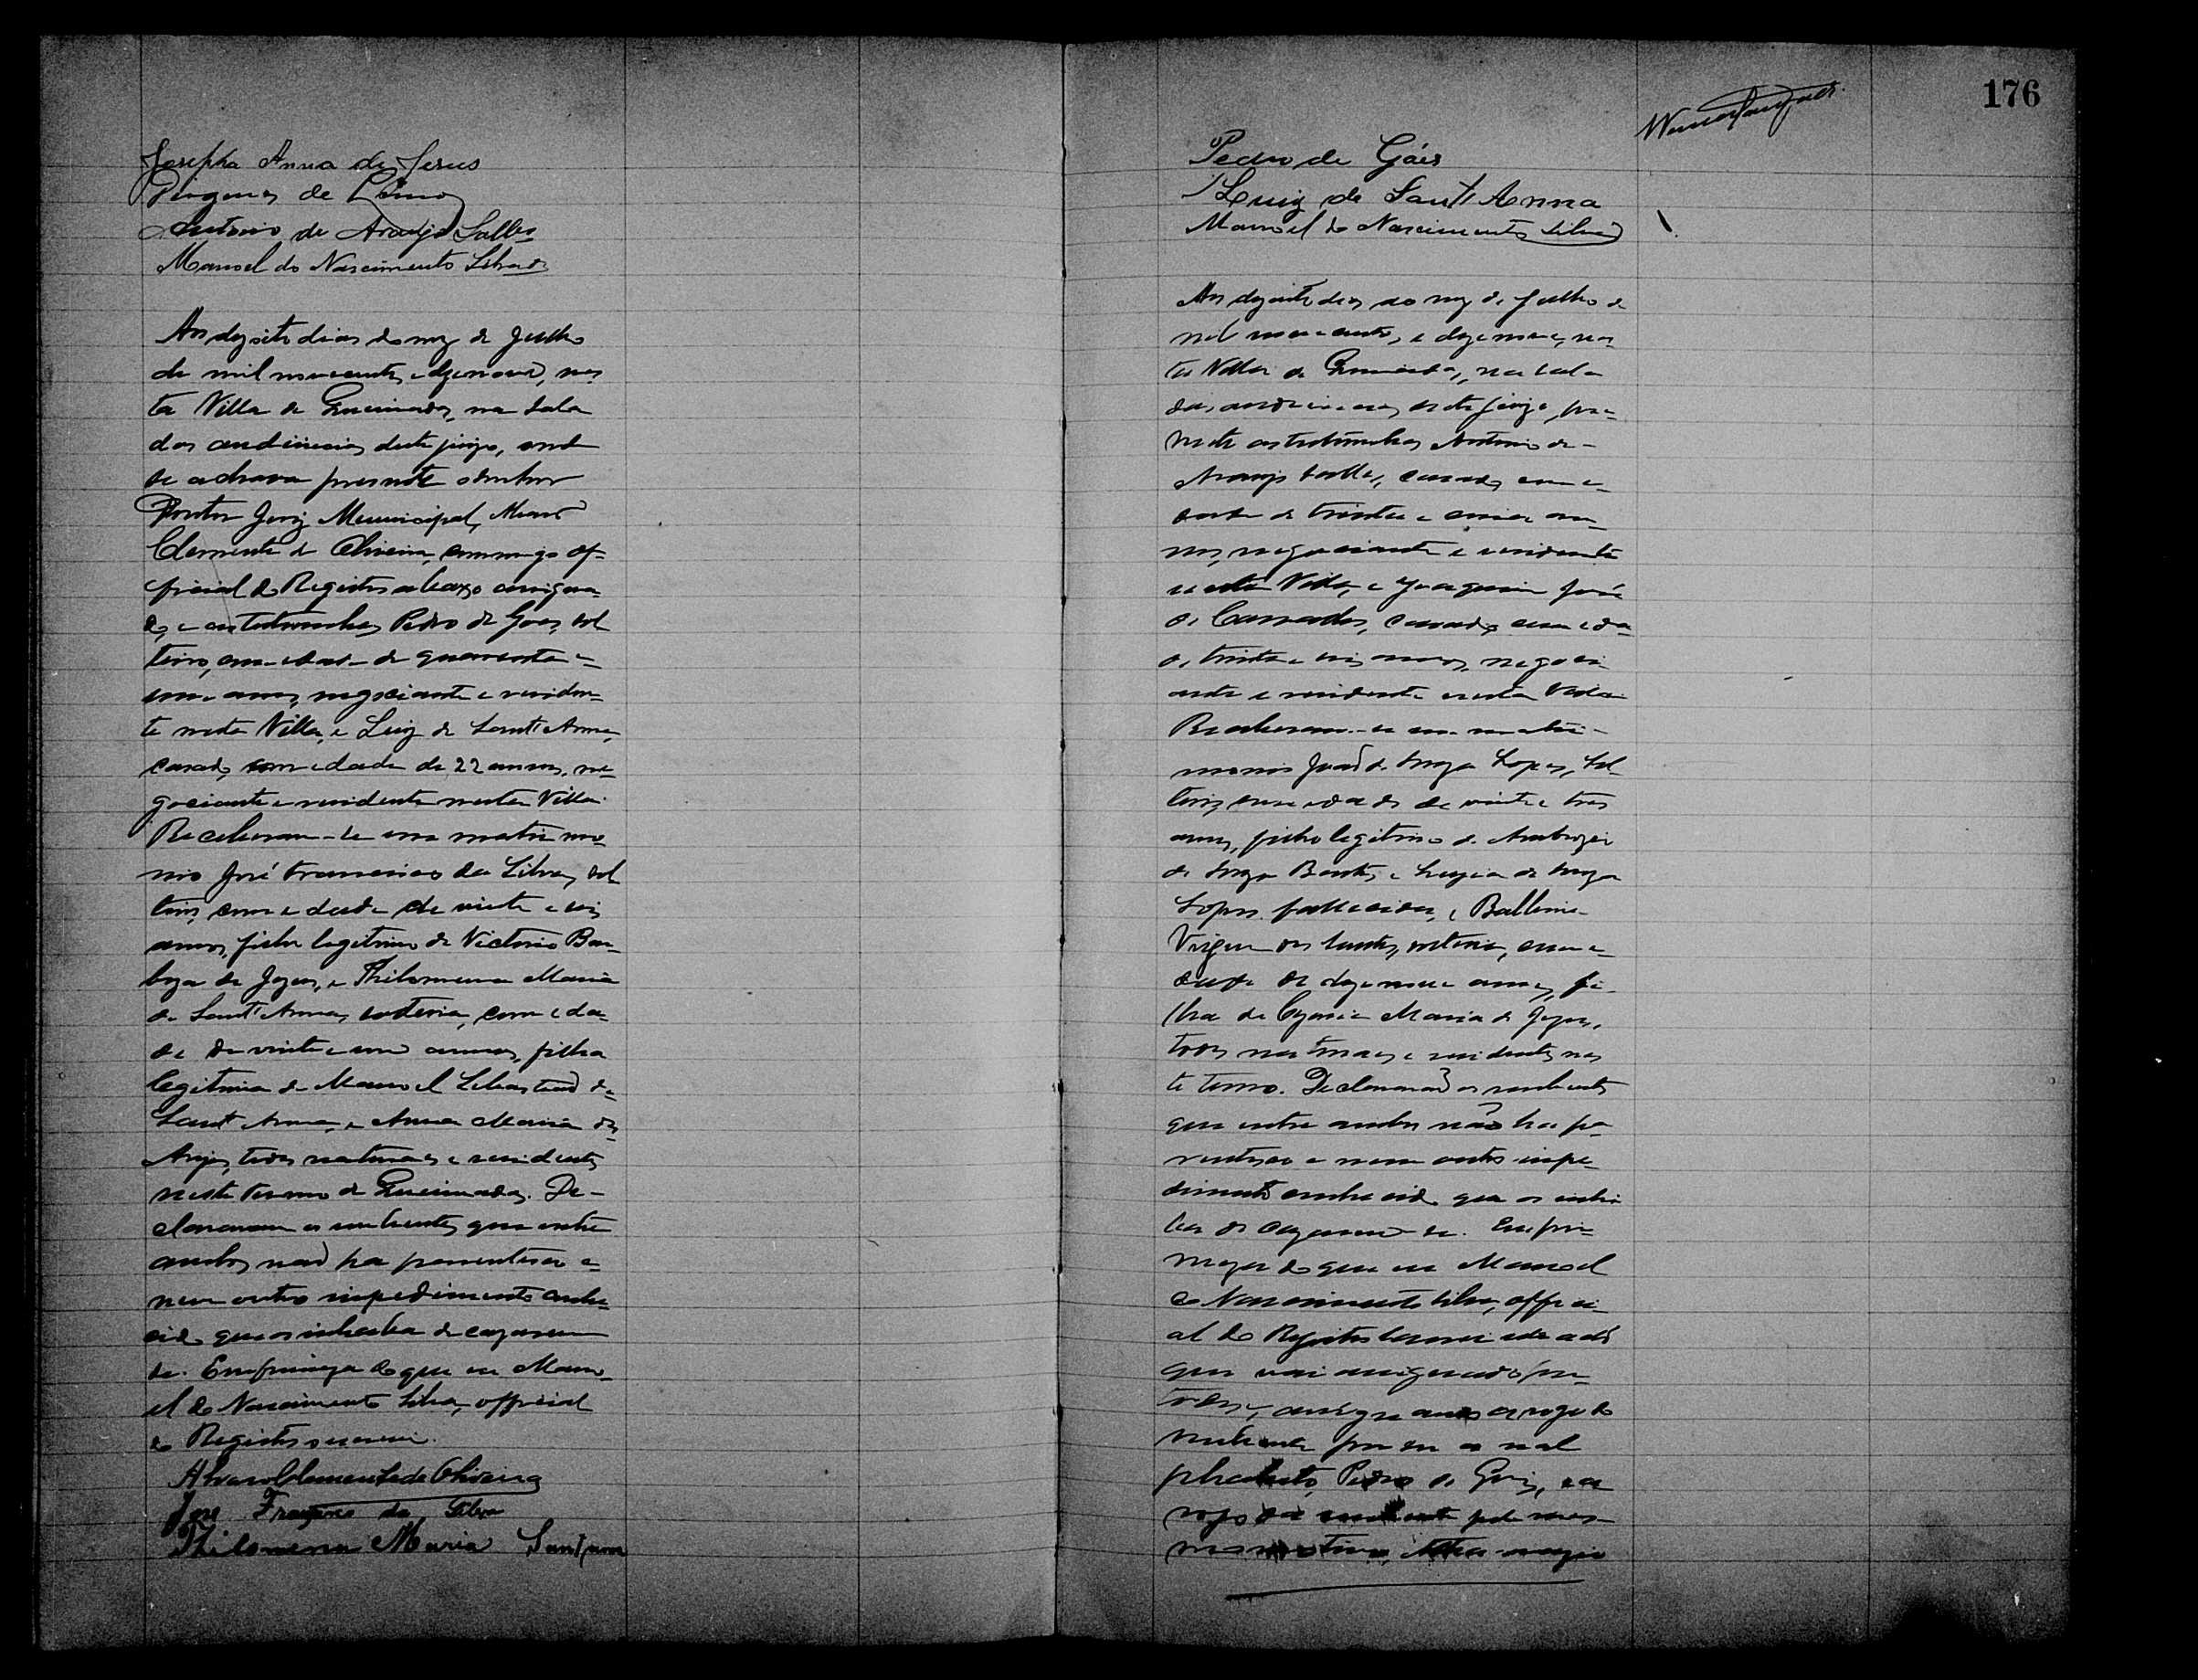 Josepha Anna de Jesus
de Lemos
Antonio de Araujo Salles
Manoel do Nascimento Silva
Aos dezoito dias do mez de Julho
de mil novecentos e dezenove, nes-
ta Villa de Queimadas, na sala
das audiencias deste juizo, onde
se achava presente o senhor
Doutor Juiz Municipal, Alvaro
Clemente de Oliveira, commigo of-
ficial do Registro abaixo assigna-
do, e as testemunhas Pedro de Goes, sol-
teiro, com edade de quarenta e
um annos, negociante e residen-
te nesta Villa, e Luiz de Sant'Anna,
casado, com edade de 22 annos, ne-
gociante e residente nesta Villa.
Receberam-se em matrimo-
nio José Francisco da Silva, sol-
teiro, com edade de vinte e seis
annos, filho legitimo de Victorio Bar-
boza de Jezus, e Philomena Maria
de Sant'Anna, solteira, com eda-
de de vinte e um annos, filha
legitima de Manoel Sebastião de
Sant'Anna, e Anna Maria dos
Anjos, todos naturaes e residentes
neste termo de Queimadas. De-
clararam os nubentes que entre
ambos não ha parentesco e
nem outro impedimento conhe-
cido que os inhiba de cazarem-
se. Em firmeza do que eu Mano-
el do Nascimento Silva, official
do Registro escrevi.
Alvaro Clemente de Oliveira
Jose Francisco da Silva
Philomena Maria Santanna
176
Pedro de Góes
Luiz de Sant'Anna
Manoel do Nascimento Silva
Aos dezoito dias do mez de Julho de
mil novecentos e dezenove, nes-
ta Villa de Queimadas, na sala
das audiencias deste juizo, pre-
sente as testemunhas Antonio de
Araujo Salles, casado, com e-
dade de trinta e cinco an-
nos, negociante e residente
nesta Villa, e Joaquim José
de casado, com eda-
de trinta e seis annos, negoci-
ante e residente nesta Villa.
Receberam-se em matri-
monio João de Lopes, sol-
teiro, com edade de vinte e tres
annos, filho legitimo de
de e de
Lopes, fallecidos, e
Virgem dos Santos, solteira, com e-
dade de dezenove annos, fi-
lha de Maria de Jezus,
todos naturaes e residentes nes-
te termo. Declararão os nubentes
que entre ambos não ha pa-
rentesco e nem outro impe-
dimento conhecido que os inhi-
ba de cazarem-se. Em fir-
meza do que eu Manoel
do Nascimento Silva, offici-
al do Registro
que vai assignado por
todos, assignando a rogo do
nubente por ser a nal-
phabeto, Pedro de Goes, e a
rogo da nubente pelo mes-
mo motivo,